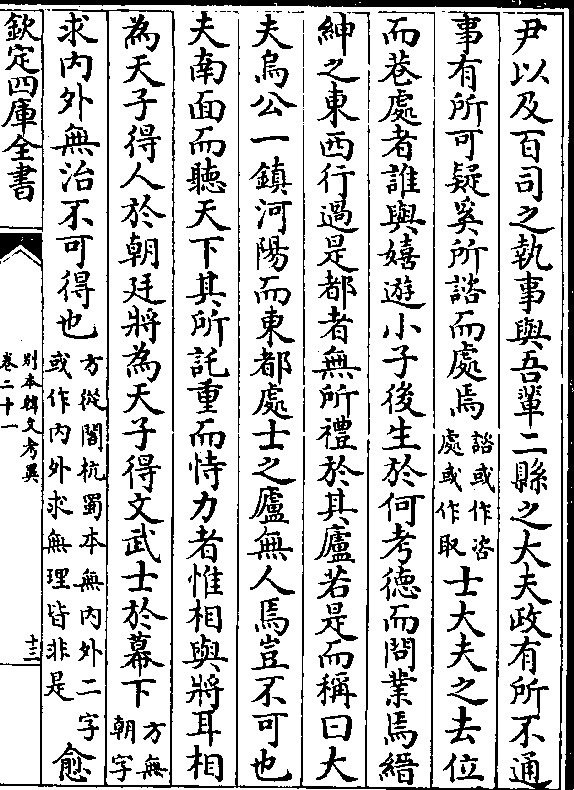 尹以及百司之執事與吾輩二縣之大夫政有所不通
事有所可疑奚所諮而處焉諮或作咨處或作取士大夫之去位
而巷處者誰與嬉遊小子後生於何考德而問業焉縉
紳之東西行過是都者無所禮於其廬若是而稱曰大
夫烏公一鎮河陽而東都處士之廬無人焉豈不可也
夫南面而聽天下其所託重而恃力者惟相與將耳相
為天子得人於朝廷將為天子得文武士於幕下方無朝字
求内外無治不可得也方從閣杭蜀本無内外二字或作内外求無理皆非是愈
欽定四庫全書
别本韓文考異
卷二十一
十三